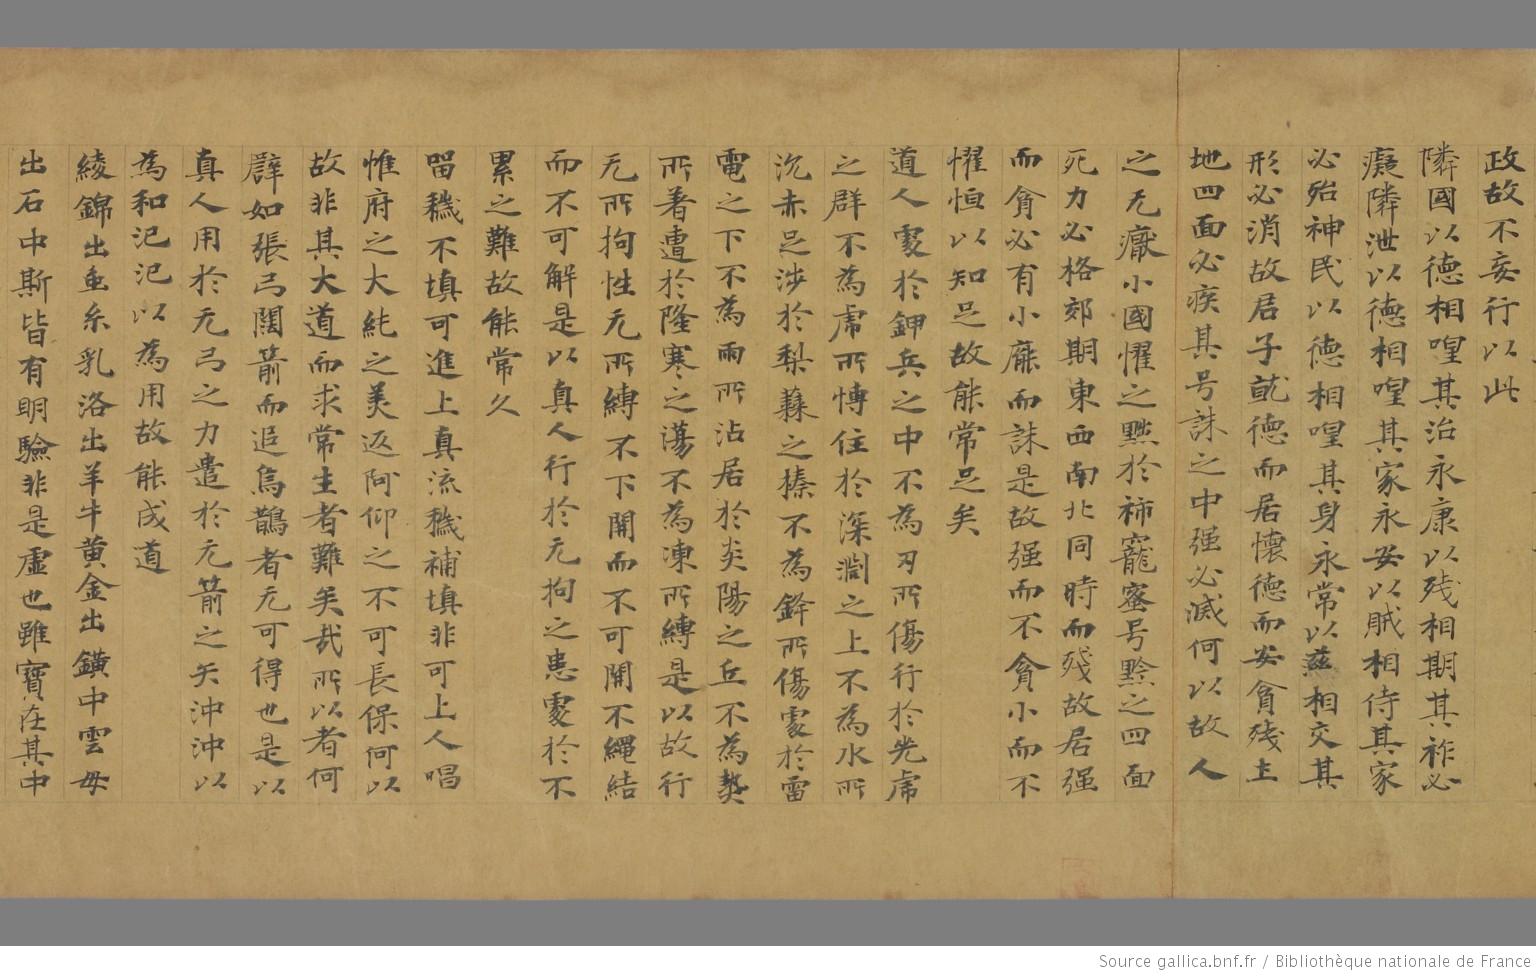 政故不妄行以此
隣國以德相㗢其治永康以残相期其祚必
癡隣泄以德相㗢其家永安以賊相侍其家
必殆神民以德相㗢其身永常以慈相交其
形必消故居子就德而居懐德而安貪殘主
地四面必疾其号誅之中强必滅何以故人
之无瘷小國懼之黙於柿寵蜜号黙之四面
死力必格郊期東西南北同時而殘故居强
而貪必有小𢊍而誅是故强而不貪小而不
懼恒以知足故能常足矣
道人𠁅於鉀兵之中不為刃所傷行於光虎
之群不為虎所愽住於深淵之上不為水所
沉赤足涉於梨䕨之榛不為鋒所傷𠁅於雷
電之下不為雨所沾居於炎陽之丘不為𤍠
所著遭於隆寒之蕩不為凍所縛是以故行
无所拘性无所縛不下開而不可開不繩結
而不可解是以真人行於无拘之患𠁅於不
累之難故能常久
㽞穖不填可進上真流穖補填非可上人唱
惟府之大純之美返阿仰之不可長保何以
故非其大道而求常生者難矣哉所以者何
辟如張弓闊箭而追烏鵲者无可得也是以
真人用於无弓之力遣於无箭之矢沖沖以
為和汜汜以為用故能成道
綾錦出重糸乳洛出羊牛黄金出鐄中雲母
出石中斯皆有明驗非是虛也雖寶在其中
Source gallica.bnf.fr / Bibliothèque nationale de France